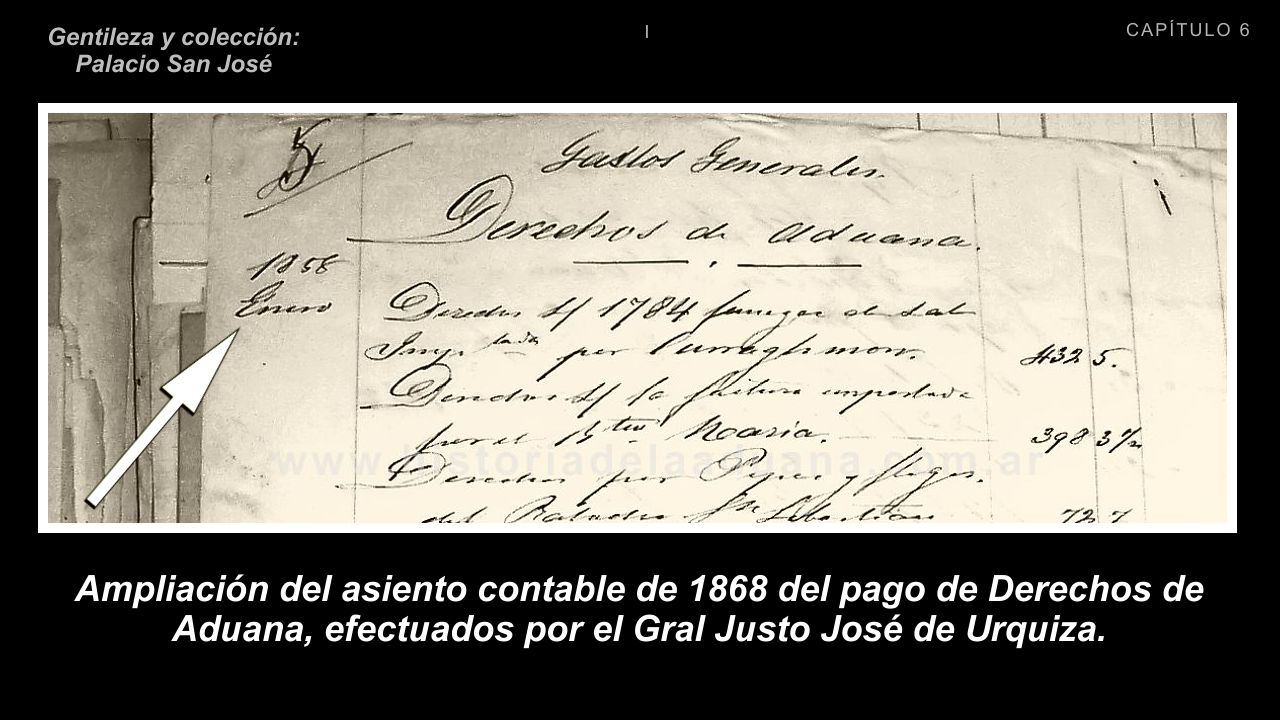 Gentileza y colección:
Palacio San José
I
CAPÍTULO 6
5
Gastos Generales.
Derechos de Aduana.
1858
Enero
Derechos s/ 1784 fanegas de sal
Imp.tada por 432 5.
Derechos s/ la factura importada
por el Maria. 398 3½
www.historiadelaaduana.com.ar
Derechos por Pipas y
del 72 7
Ampliación del asiento contable de 1868 del pago de Derechos de
Aduana, efectuados por el Gral Justo José de Urquiza.